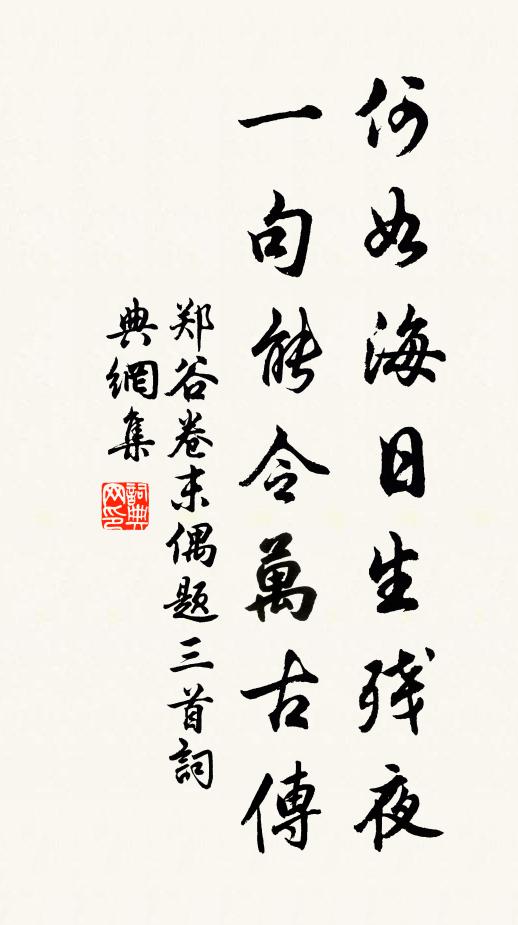 何如海日生残夜
一句能令萬古傳
郑谷卷末偶题三首詞
典網集
詞典网印